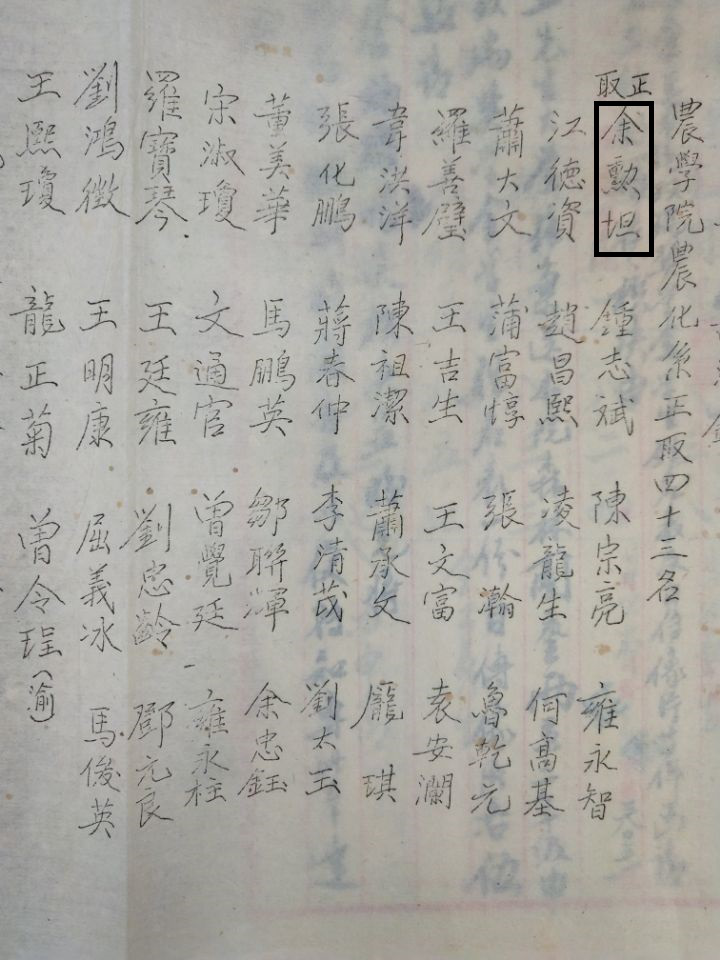 農學院農化系正取四十三名
正取
余勲坦 鍾志斌 陳宗亮 雍永智
江德資 趙昌熙 凌龍生 何高基
蕭大文 蒲富惇 張瀚 魯乾元
羅善璧 王吉生 王文富 袁安瀾
韋洪洋 陳祖潔 蕭承文 龐琪
張化鵬 蔣春仲 李清茂 劉太玉
董美華 馬鵬英 鄒聯渾 余忠鈺
宋淑瓊 文通官 曾覺廷 雍永柱
羅寶琴 王廷雍 劉忠齡 鄧元良
劉鴻徵 王明康 屈義冰 馬俊英
王熙瓊 龍正菊 曾令珵(渝)